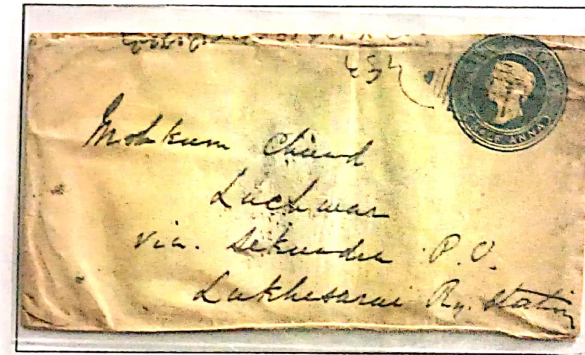 HALF ANNA
Mohkum Chand
Lachwar
via. Sekundra P.O.
Lukhesarai Ry. Station